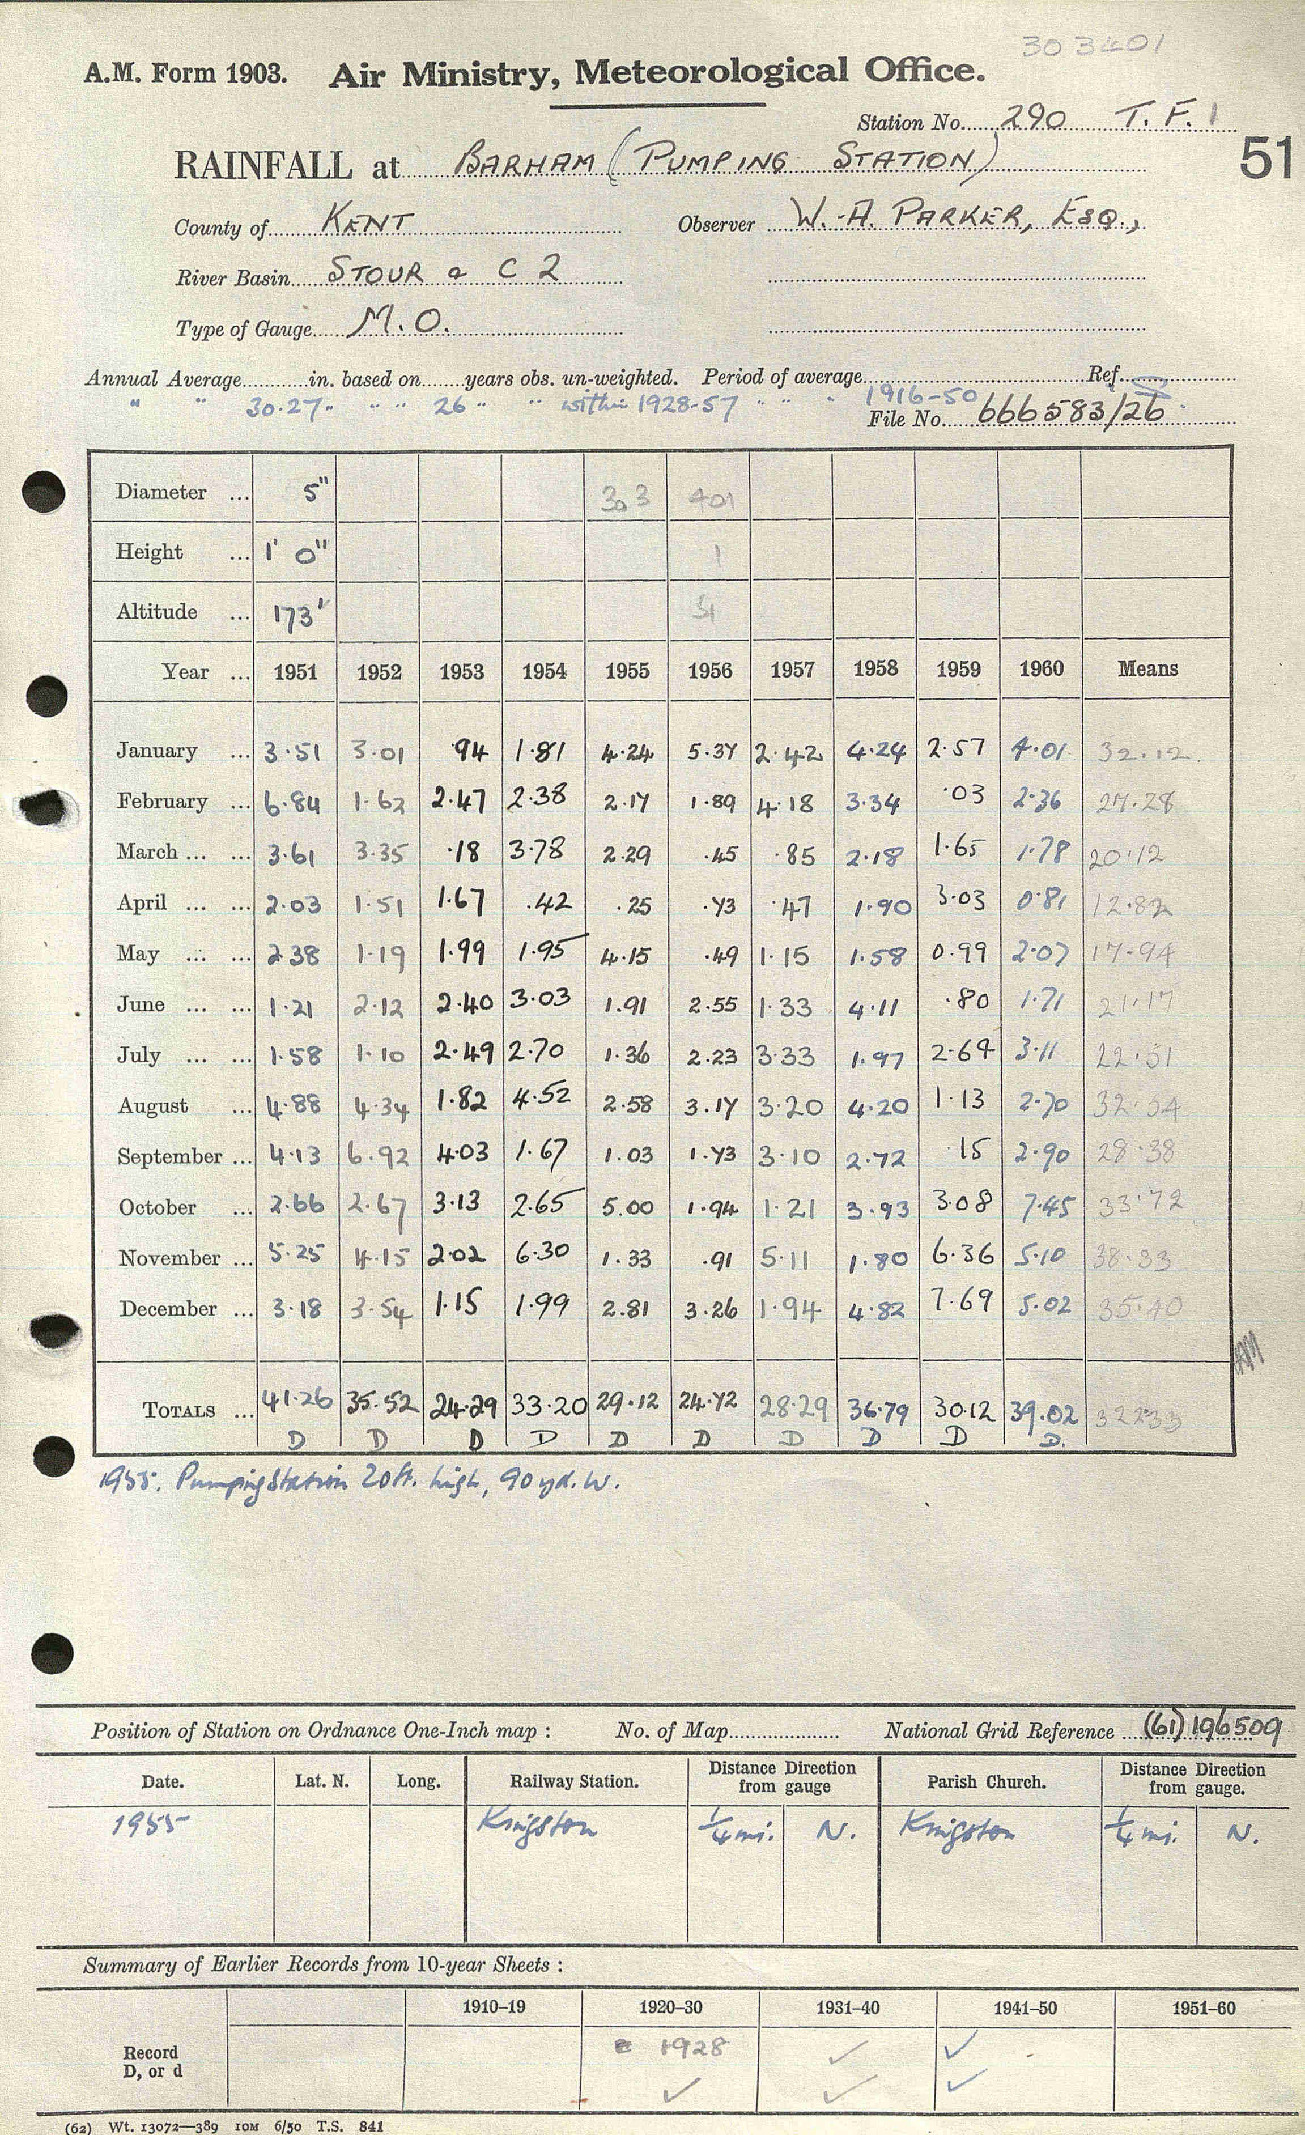 303401
A.M. Form 1903. Air Ministry, Meteorological Office.
Station No. 290 T.F.1
51
RAINFALL at BARHAM (PUMPING STATION)
County of KENT Observer W. A. PARKER, ESQ.,
River Basin STOUR & C 2
Type of Gauge M.O.
Annual Average in. based on years obs. un-weighted. Period of average Ref.
" " 30.27 " " " 26 " " within 1928-57 " " " 1916-50
File No. 666583/26
Diameter ... 5" 303 401
Height ... 1' 0" 1
Altitude ... 173'
Year ... 1951 1952 1953 1954 1955 1956 1957 1958 1959 1960 Means
January ... 3.51 3.01 .94 1.81 4.24 5.37 2.42 4.24 2.57 4.01 32.12
February ... 6.84 1.62 2.47 2.38 2.17 1.89 4.18 3.34 .03 2.36 27.28
March ... ... 3.61 3.35 .18 3.78 2.29 .45 .85 2.18 1.65 1.78 20.12
April ... ... 2.03 1.51 1.67 .42 .25 .73 .47 1.90 3.03 0.81 12.82
May ... ... 2.38 1.19 1.99 1.95 4.15 .49 1.15 1.58 0.99 2.07 17.94
June ... ... 1.21 2.12 2.40 3.03 1.91 2.55 1.33 4.11 .80 1.71 21.17
July ... ... 1.58 1.10 2.49 2.70 1.36 2.23 3.33 1.97 2.64 3.11 22.51
August ... 4.88 4.34 1.82 4.52 2.58 3.17 3.20 4.20 1.13 2.70 32.54
September ... 4.13 6.92 4.03 1.67 1.03 1.73 3.10 2.72 .15 2.90 28.38
October ... 2.66 2.67 3.13 2.65 5.00 1.94 1.21 3.93 3.08 7.45 33.72
November ... 5.25 4.15 2.02 6.30 1.33 .91 5.11 1.80 6.36 5.10 38.33
December ... 3.18 3.54 1.15 1.99 2.81 3.26 1.94 4.82 7.69 5.02 35.40
TOTALS ... 41.26 35.52 24.29 33.20 29.12 24.72 28.29 36.79 30.12 39.02 322.33
D D D D D D D D D D.
1955: Pumping Station 20ft. high, 90 yd. W.
Position of Station on Ordnance One-Inch map : No. of Map National Grid Reference (61) 196509
Date. Lat. N. Long. Railway Station. Distance Direction from gauge Parish Church. Distance Direction from gauge.
1955 Kingston ¼ mi. N. Kingston ¼ mi. N.
Summary of Earlier Records from 10-year Sheets :
1910–19 1920–30 1931–40 1941–50 1951–60
Record 1928 ✓ ✓
D, or d ✓ ✓ ✓
(62) Wt. 13072—389 10M 6/50 T.S. 841